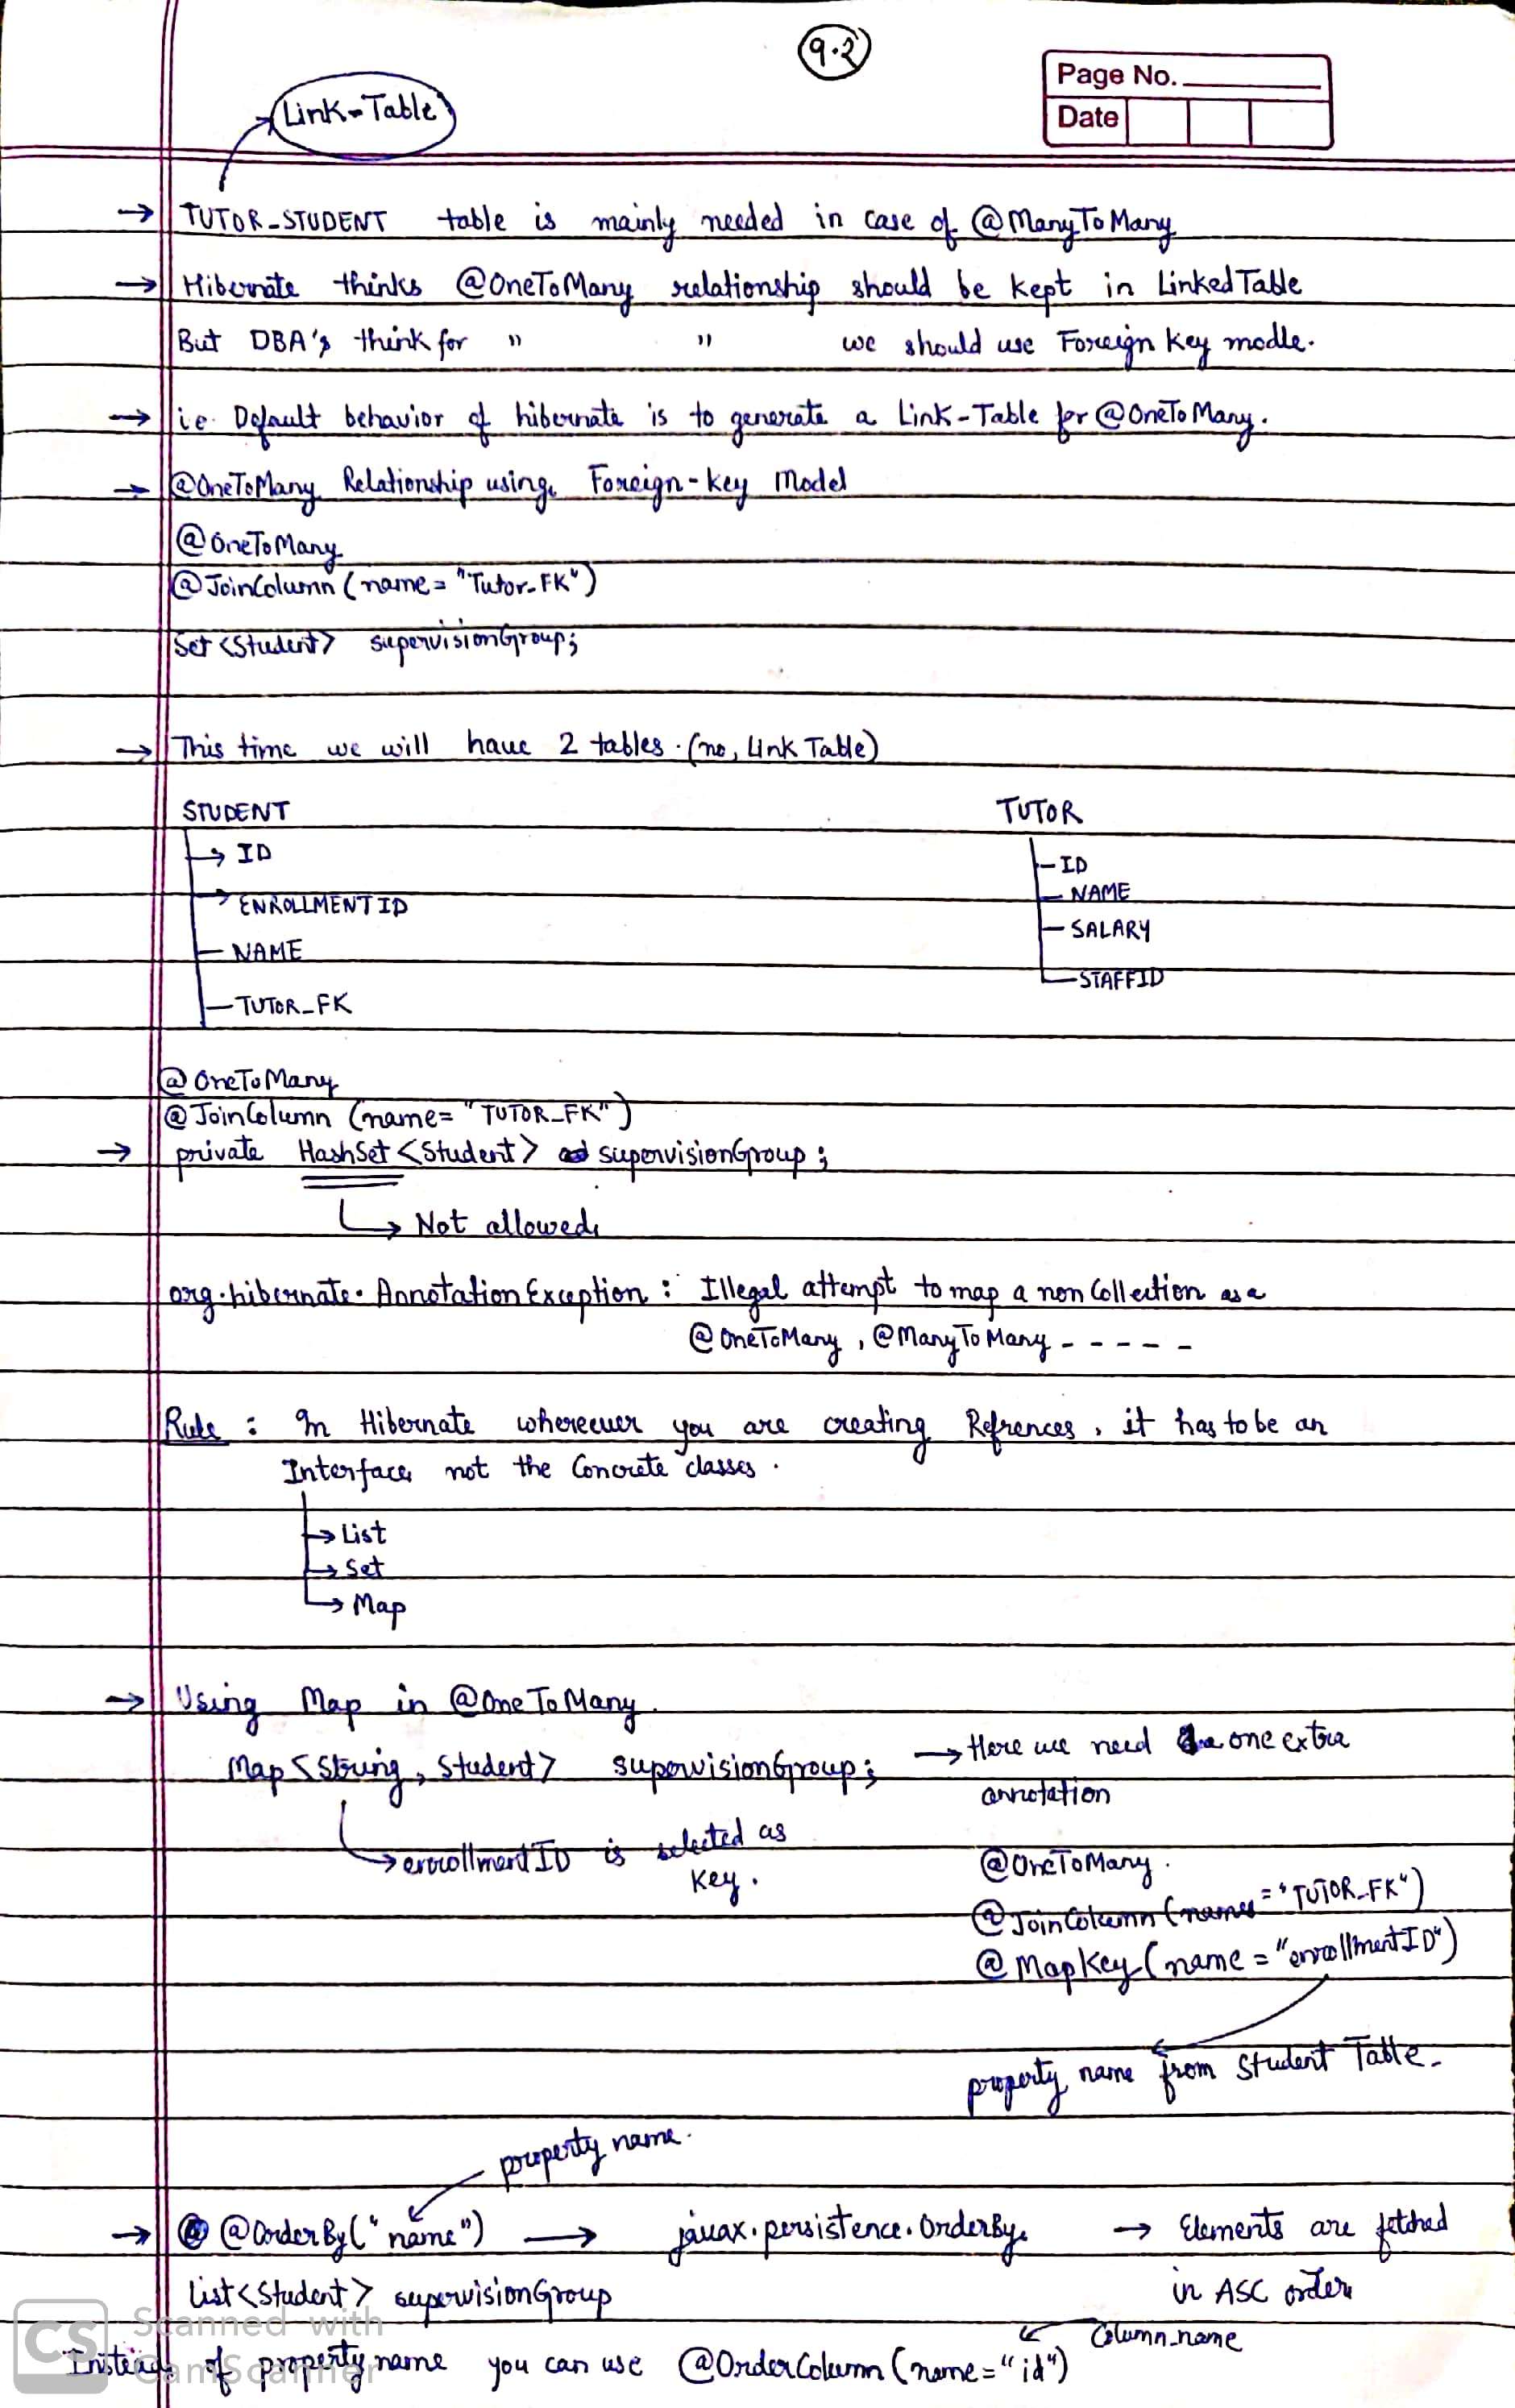 9.2
Page No.
Date
Link-Table
→ TUTOR_STUDENT table is mainly needed in case of @ManyToMany
→ Hibernate thinks @OneToMany relationship should be kept in Linked Table
But DBA's think for " " we should use Foreign Key modle.
→ i.e. Default behavior of hibernate is to generate a Link-Table for @OneToMany.
→ @OneToMany Relationship using Foreign-key Model
@OneToMany
@JoinColumn (name = "Tutor_FK")
Set <Student> supervisionGroup;
→ This time we will have 2 tables. (no, Link Table)
STUDENT TUTOR
→ ID
ID
→ ENROLLMENTID
NAME
NAME
SALARY
TUTOR_FK
STAFFID
@OneToMany
@JoinColumn (name= "TUTOR_FK")
→ private HashSet <Student> supervisionGroup;
→ Not allowed.
org.hibernate.AnnotationException : Illegal attempt to map a non collection as a
@OneToMany, @ManyToMany - - - - -
Rule : In Hibernate whereever you are creating Refrences, it has to be an
Interface, not the Concrete classes.
→ List
→ Set
→ Map
→ Using Map in @OneToMany.
Map <String, Student> supervisionGroup; → Here we need one extra
annotation
→ enrollmentID is selected as
key.
@OneToMany.
@JoinColumn (name = "TUTOR_FK")
@MapKey (name = "enrollmentID")
property name from Student Table.
property name.
→ @OrderBy("name") → javax.persistence.OrderBy. → Elements are fetched
List<Student> supervisionGroup in ASC order
Column_name
Instead of property name you can use @OrderColumn (name="id")
CS Scanned with
CamScanner